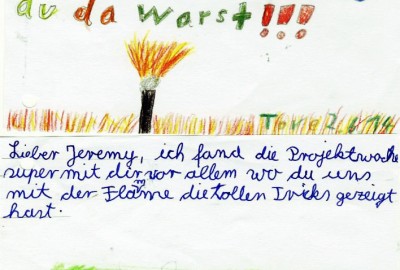 du da warst!!!
Lieber Jeremy, ich fand die Projektwoche
super mit dir vor allem wo du uns
mit der Flamme die tollen Tricks gezeigt
hast.